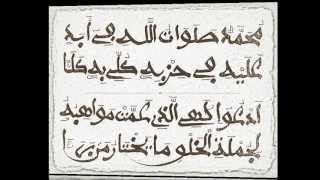 محمد صلوات الله في أبد
عليه في حزبه كل به
ادعوا الهي الذي عمت مواهبه
لجملة الخلق ما يختار من